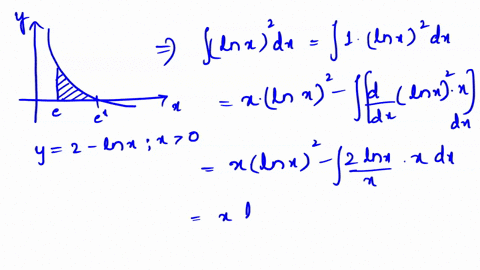 y
e e² x
y = 2 - lnx ; x > 0
⇒ ∫(lnx)² dx = ∫1·(lnx)² dx
= x·(lnx)² - ∫[d/dx (lnx)²·x] dx
= x(lnx)² - ∫ 2lnx/x · x dx
= x l